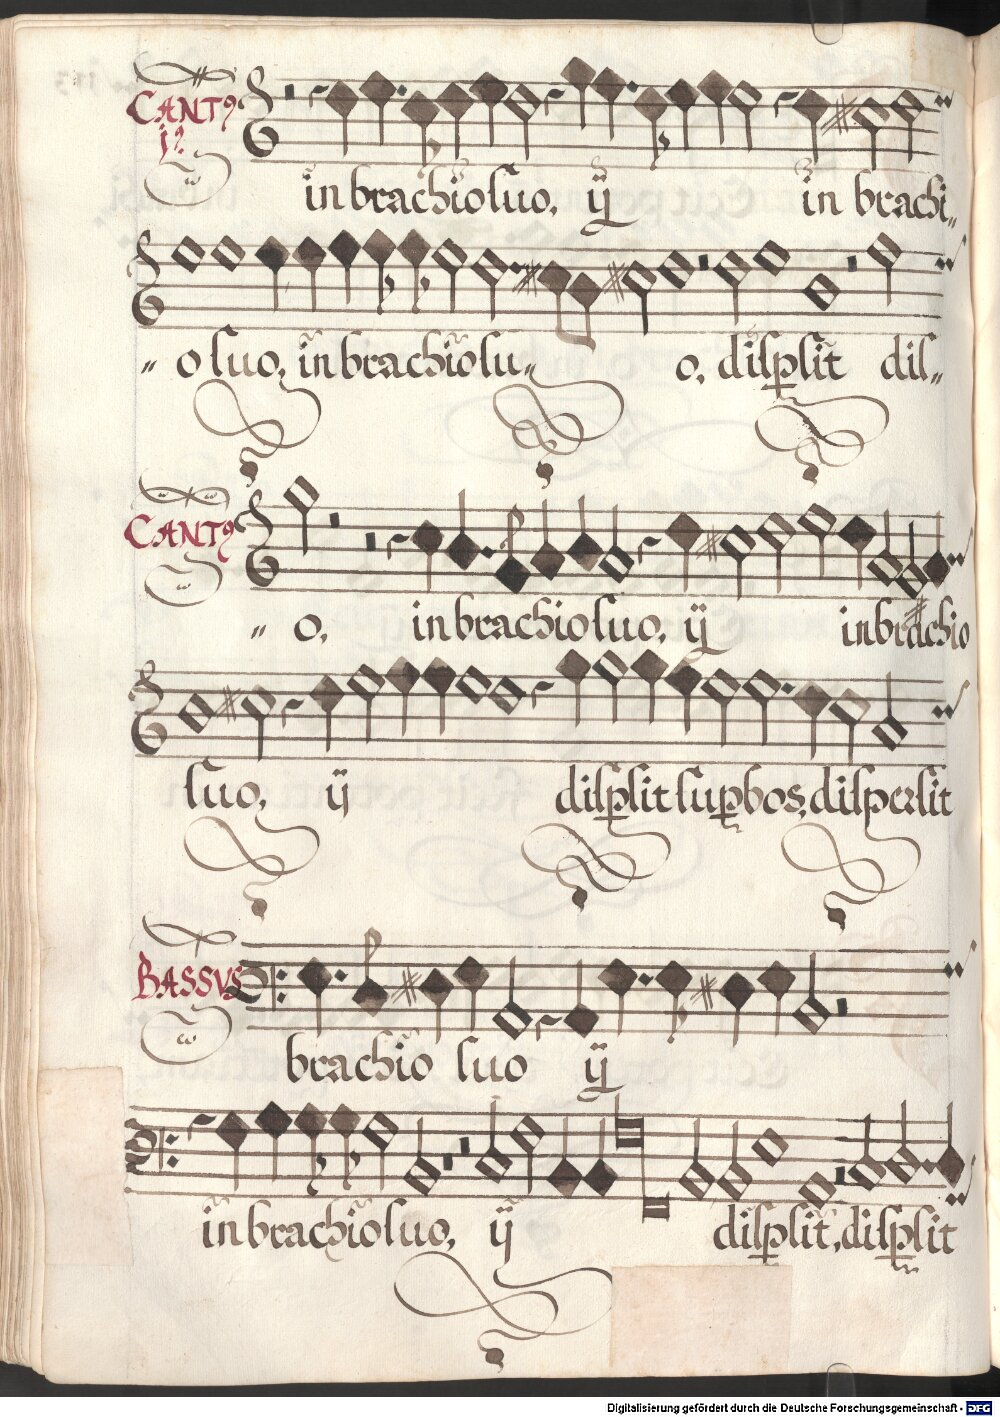 CANTꝰ
jꝰ
in brachio suo, ij in brachi„
„ o suo, in brachio su„ o, disꝑsit dis„
CANTꝰ
„ o, in brachio suo, ij in brachio
suo, ij disꝑsit suꝑbos, dispersit
BASSVS
brachio suo ij
in brachio suo, ij disꝑsit, disꝑsit
Digitalisierung gefördert durch die Deutsche Forschungsgemeinschaft - DFG